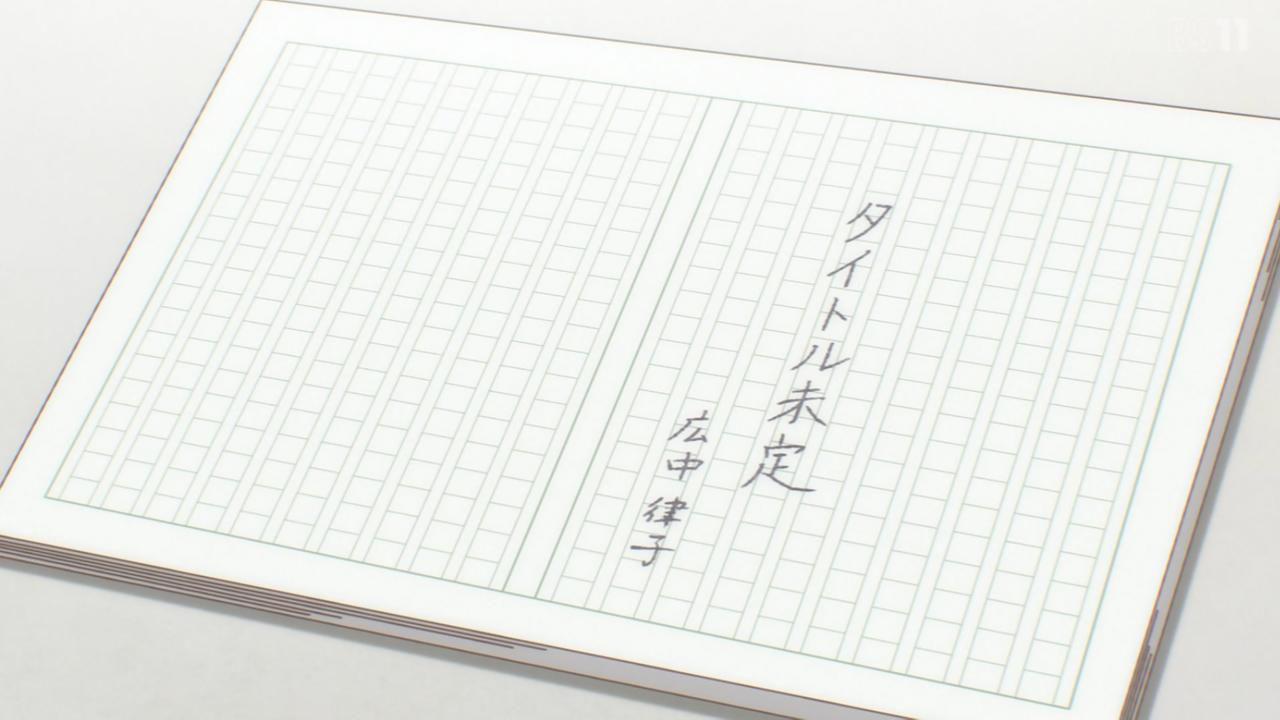 タイトル未定
広中律子
11